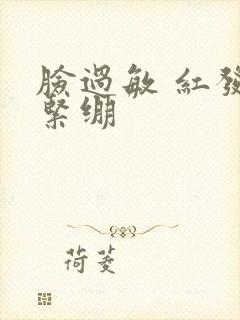 臉過敏 紅發
緊繃
荷菱